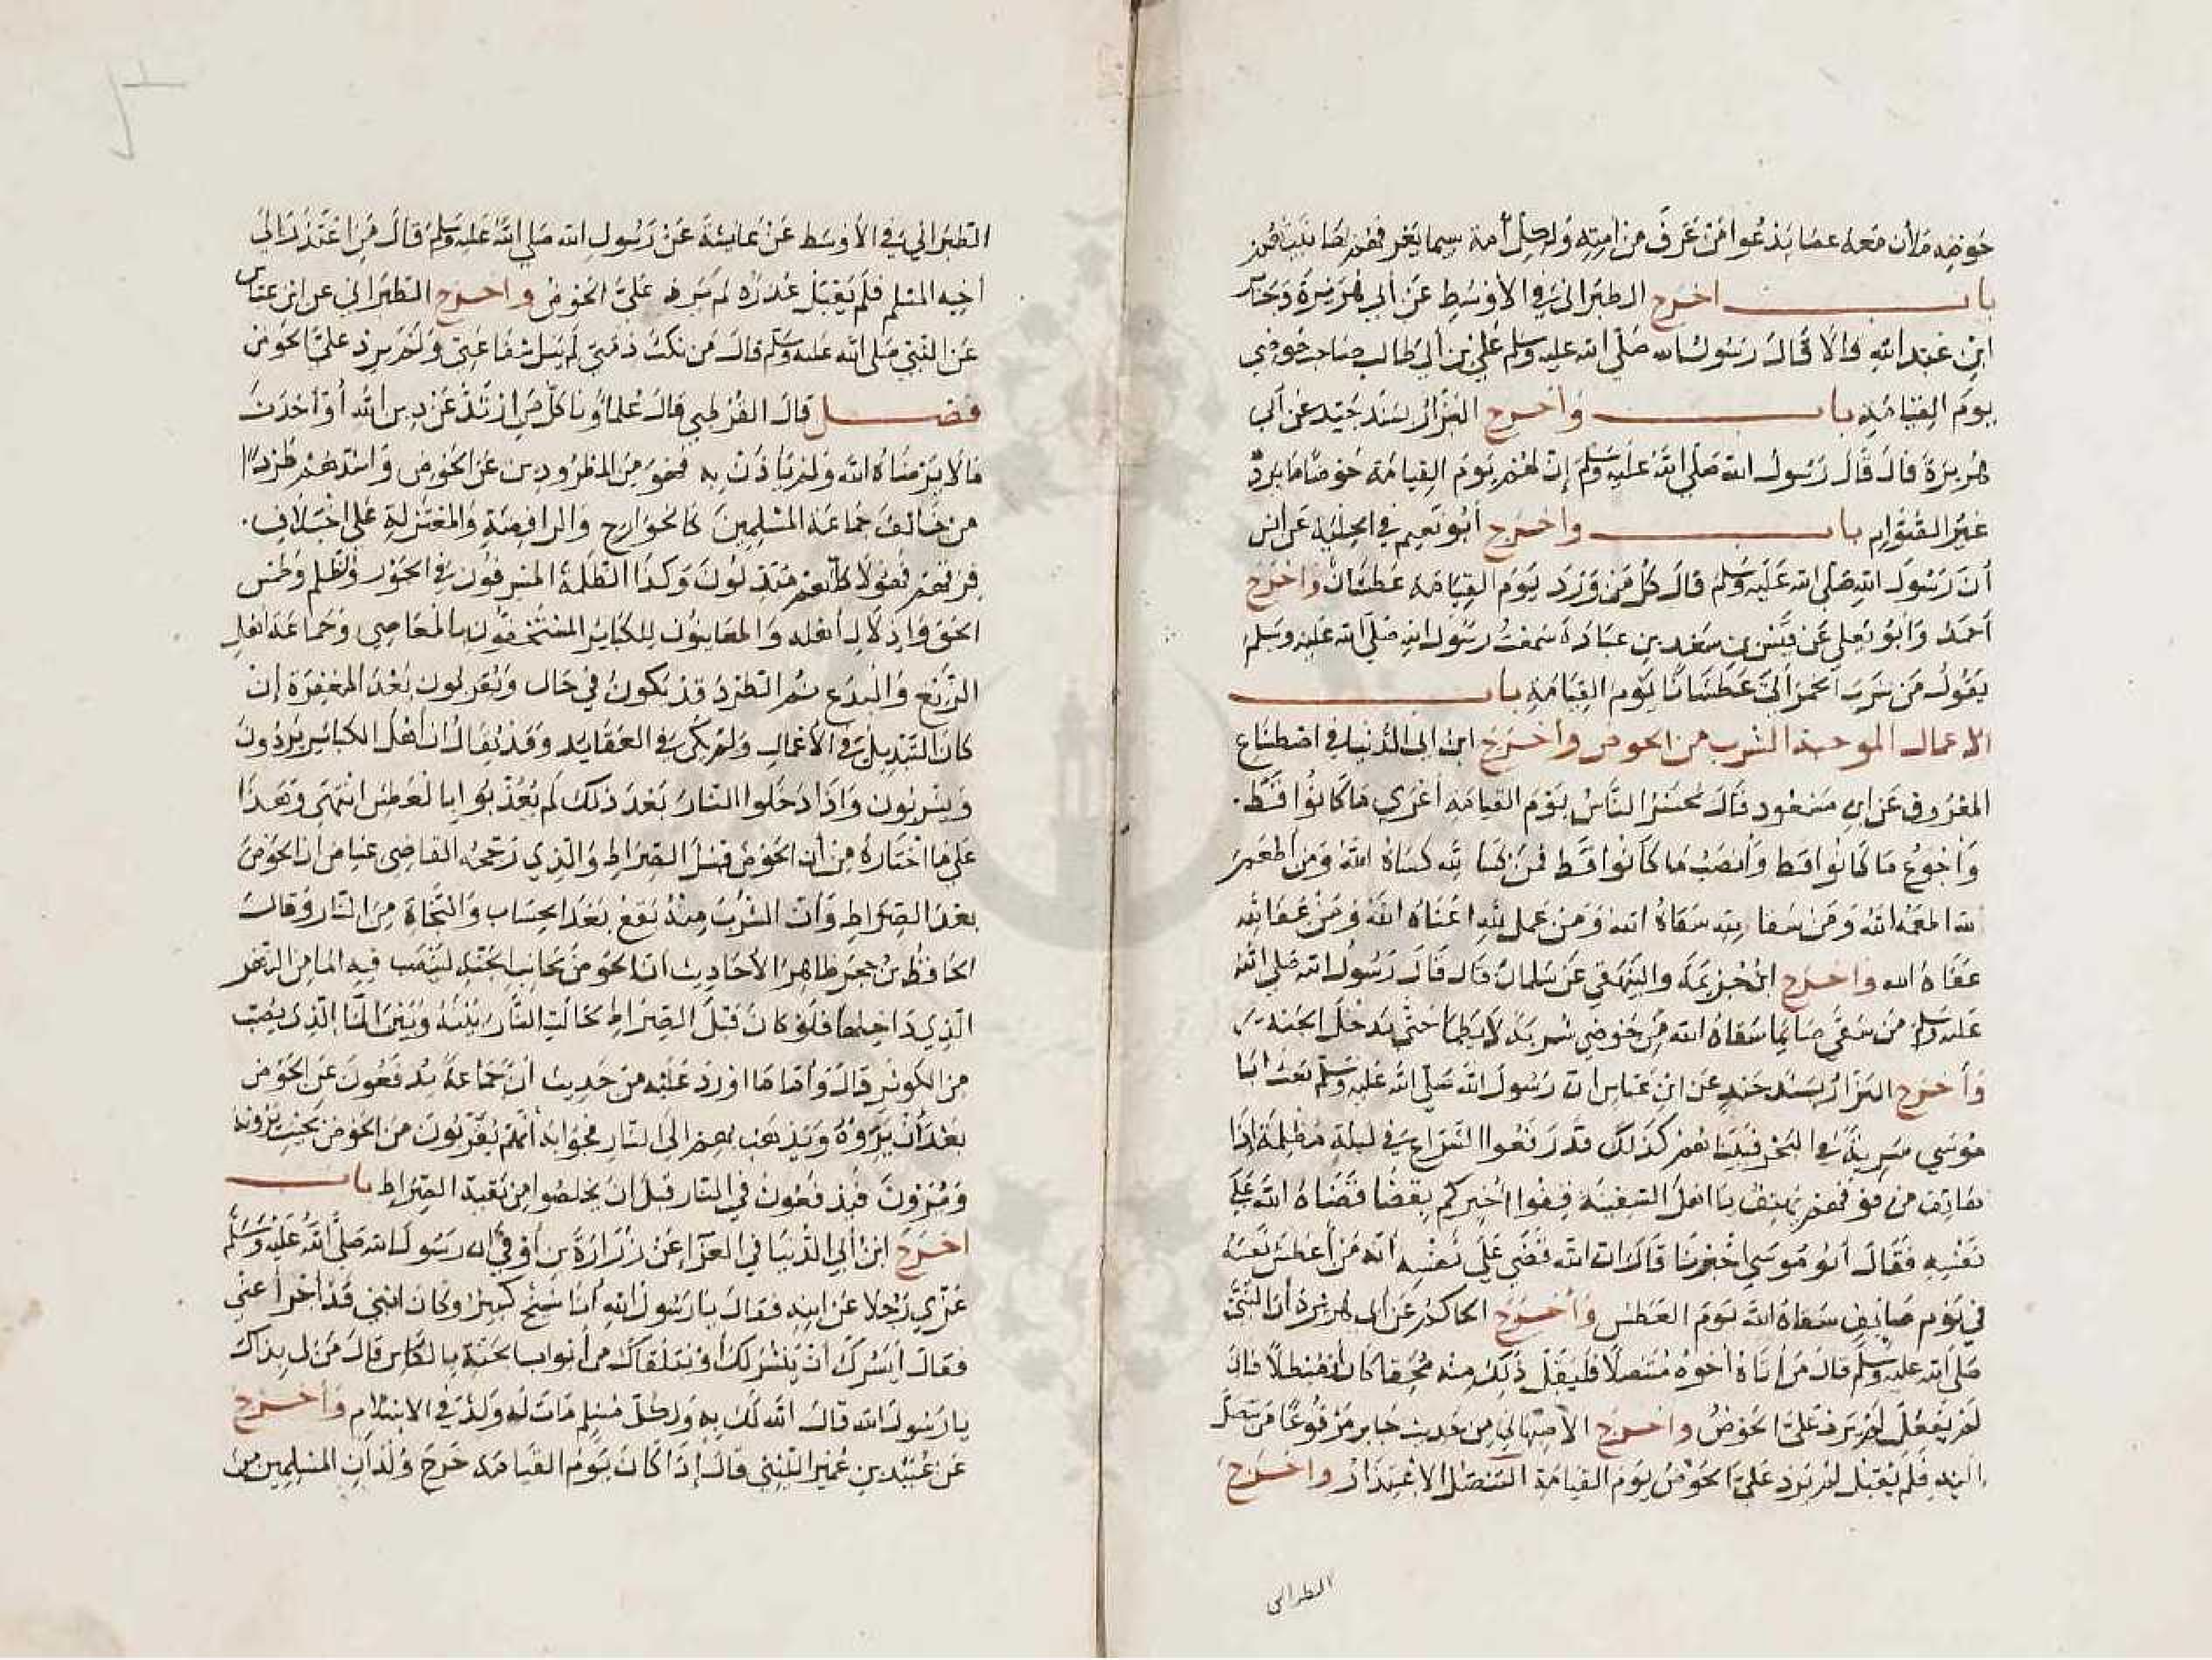 حوضه ملأن معه عصا يدعوا من عرف من امته ولكل أمة سيما يعرفهم بها نبيهم
باب اخرج الطبراني في الأوسط عن أبي هريرة وجابر
ابن عبد الله قالا قال رسول الله صلى الله عليه وسلم علي بن أبي طالب صاحب حوضي
يوم القيامة باب وأخرج البزار بسند جيد عن أبي
هريرة قال قال رسول الله صلى الله عليه وسلم إن لهم يوم القيامة حوضا ما يرده
غير الصوام باب واخرج أبو نعيم في الحلية عن انس
أن رسول الله صلى الله عليه وسلم قال كل من ورد يوم القيامة عطشان واخرج
أحمد وأبو يعلي عن قيس بن سعد بن عبادة سمعت رسول الله صلى الله عليه وسلم
يقول من شرب الخمر أتى عطشانا يوم القيامة باب
الاعمال الموجبة الشرب من الحوض وأخرج ابن ابي الدنيا في اصطناع
المعروف عن ابن مسعود قال يحشر الناس يوم القيامة أعرى ما كانوا قط
وأجوع ما كانوا قط وأنصب ما كانوا قط فمن كسا لله كساه الله ومن أطعم
لله اطعمه الله ومن سقا لله سقاه الله ومن عمل لله اغناه الله ومن عفا لله
عفاه الله واخرج ابن خزيمة والبيهقي عن سلمان قال قال رسول الله صلى الله
عليه وسلم من سقى صايما سقاه الله من حوضي شربة لا يظمأ حتى يدخل الجنة
وأخرج البزار بسند جيد عن ابن عباس ان رسول الله صلى الله عليه وسلم بعث ابا
موسي سرية في البحر فبينما هم كذلك قد رفعوا الشراع في ليلة مظلمة إذا
هاتف من فوقهم يهتف يا اهل السفينة قفوا اخبركم بقضا قضاه الله على
نفسه فقال أبو موسي اخبرنا قال ان الله قضى على نفسه أنه من أعطش نفسه
في يوم صايف سقاه الله يوم العطش وأخرج الحاكم عن ابي هريرة أن النبي
صلى الله عليه وسلم قال من اتاه أخوه متنصلا فليقبل ذلك منه محقا كان أو مبطلا فان
لم يفعل لم يرد على الحوض واخرج الأصبهاني من حديث جابر مرفوعا من تنصل
اليه فلم يقبل لم يرد على الحوض يوم القيامة التنصل الاعتذار واخرج
الطبراني
الطبراني في الأوسط عن عايشة عن رسول الله صلى الله عليه وسلم قال من اعتذر الى
أخيه المسلم فلم يقبل عذره لم يرد علي الحوض واخرج الطبراني عن ابن عباس
عن النبي صلى الله عليه وسلم قال من نكث ذمتي لم ينل شفاعتي ولم يرد علي الحوض
فصل قال القرطبي قال علماؤنا كل من ارتد عن دين الله أو أحدث
ما لا يرضاه الله ولم يأذن به فهو من المطرودين عن الحوض وأشدهم طردا
من خالف جماعة المسلمين كالخوارج والرافضة والمعتزلة على اختلاف
فرقهم فهؤلاء كلهم مبدلون وكذا الظلمة المسرفون في الجور والظلم وطمس
الحق وإذلال أهله والمعلنون للكباير المستخفون بالمعاصي وجماعة اهل
الزيغ والبدع ثم الطرد قد يكون في حال ويقربون بعد المغفرة إن
كان التبديل في الأعمال ولم يكن في العقايد وقد يقال ان أهل الكبائر يردون
ويشربون واذا دخلوا النار بعد ذلك لم يعذبوا بالعطش انتهى وهذا
على ما اختاره من أن الحوض قبل الصراط والذي رجحه القاضي عياض ان الحوض
بعد الصراط وأن الشرب منه يقع بعد الحساب والنجاة من النار وقال
الحافظ بن حجر ظاهر الأحاديث أن الحوض بجانب الجنة لينصب فيه الما من النهر
الذي داخلها فلو كان قبل الصراط لحالت النار بينه وبين الما الذي يصب
من الكوثر قال وأما ما اورد عليه من حديث أن جماعة يدفعون عن الحوض
بعد أن يروه ويذهب بهم الى النار فجوابه أنهم يقربون من الحوض بحيث يرونه
ويرون فيدفعون في النار قبل ان يخلصوا من بقية الصراط باب
اخرج ابن أبي الدنيا في العزاء عن زرارة بن أوفي ان رسول الله صلى الله عليه وسلم
عزي رجلا عن ابنه فقال يا رسول الله أنا شيخ كبير وكان ابني قد أجزا عني
فقال أيسرك أن يشر لك أو يتلقاك من أبواب الجنة بالكاس قال من لي بذاك
يا رسول الله قال الله لك به ولكل مسلم مات له ولد في الاسلام وأخرج
عن عبيد بن عمير الليثي قال إذا كان يوم القيامة خرج ولدان المسلمين من